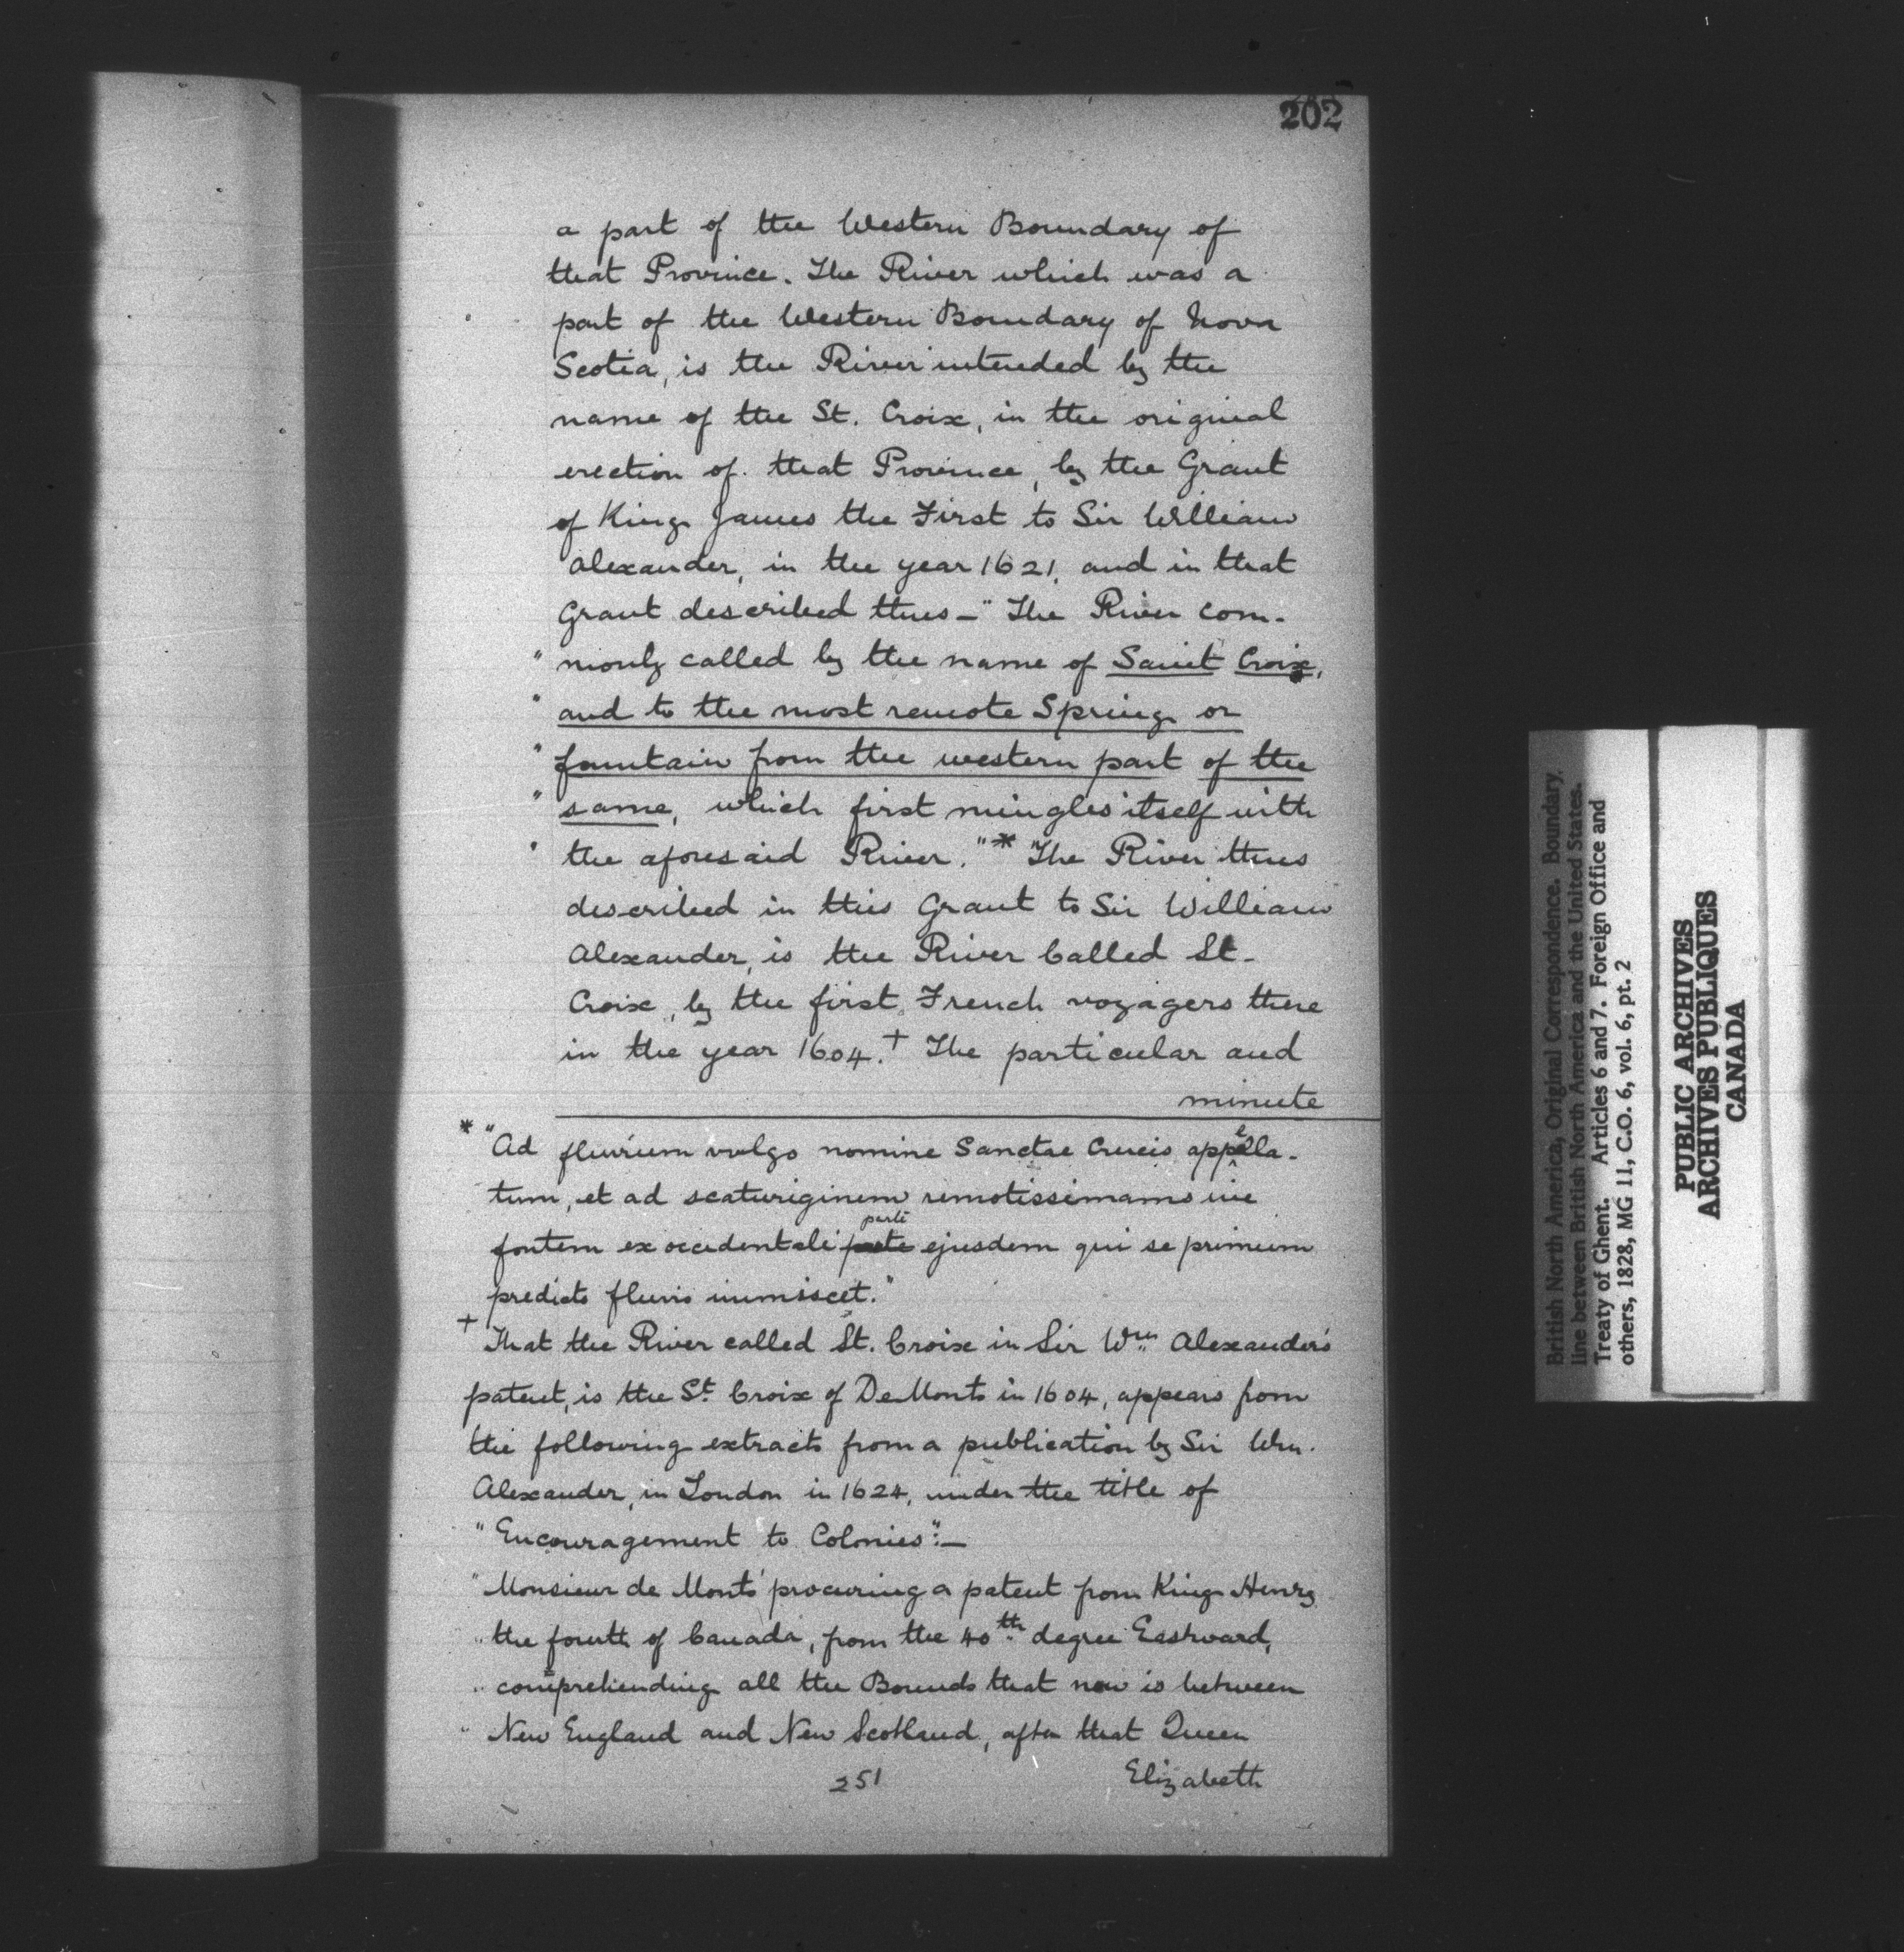 202
a part of the Western Boundary of
that Province. The River which was a
part of the Western Boundary of Nova
Scotia, is the River intended by the
name of the St. Croix, in the original
erection of that Province, by the Grant
of King James the First to Sir William
Alexander, in the year 1621, and in that
Grant described thus - "The River com-
" monly called by the name of Saint Croix,
" and to the most remote Spring or
" fountain from the western part of the
" same, which first mingles itself with
" the aforesaid River."* The River thus
described in this Grant to Sir William
Alexander, is the River Called St.
Croix, by the first French voyagers there
in the year 1604.+ The particular and
minute
* "Ad fluvium vulgo nomine Sanctae Crucis appella-
tum, et ad scaturiginem remotissimam sive
fontem ex occidentali parte ejusdem qui se primum
predicto fluvio immiscet."
+ That the River called St. Croix in Sir Wm. Alexander's
patent, is the St. Croix of De Monts in 1604, appears from
the following extracts from a publication by Sir Wm.
Alexander, in London in 1624, under the title of
"Encouragement to Colonies":—
"Monsieur de Monts procuring a patent from King Henry
" the fourth of Canada, from the 40th degree Eastward,
" comprehending all the Bounds that now is between
" New England and New Scotland, after that Queen
Elizabeth
251
British North America, Original Correspondence. Boundary
line between British North America and the United States.
Treaty of Ghent. Articles 6 and 7. Foreign Office and
others, 1828, MG 11, C.O. 6, vol. 6, pt. 2
PUBLIC ARCHIVES
ARCHIVES PUBLIQUES
CANADA